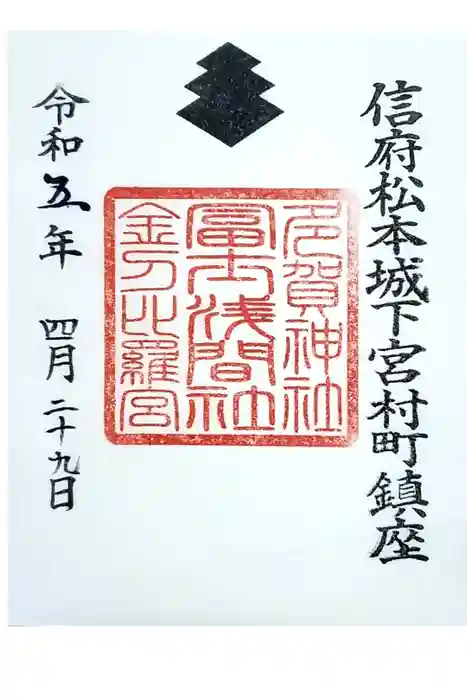 信府松本城下宮村町鎮座
多賀神社
冨士浅間社
金刀比羅宮
令和五年 四月二十九日